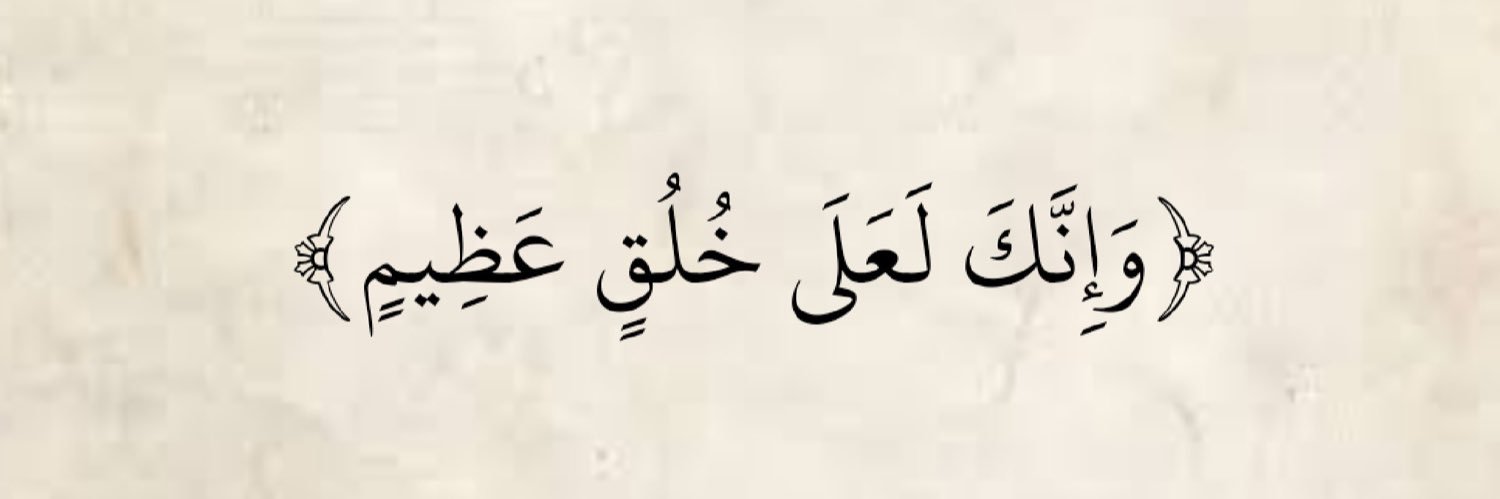 ﴿وَإِنَّكَ لَعَلَى خُلُقٍ عَظِيمٍ﴾